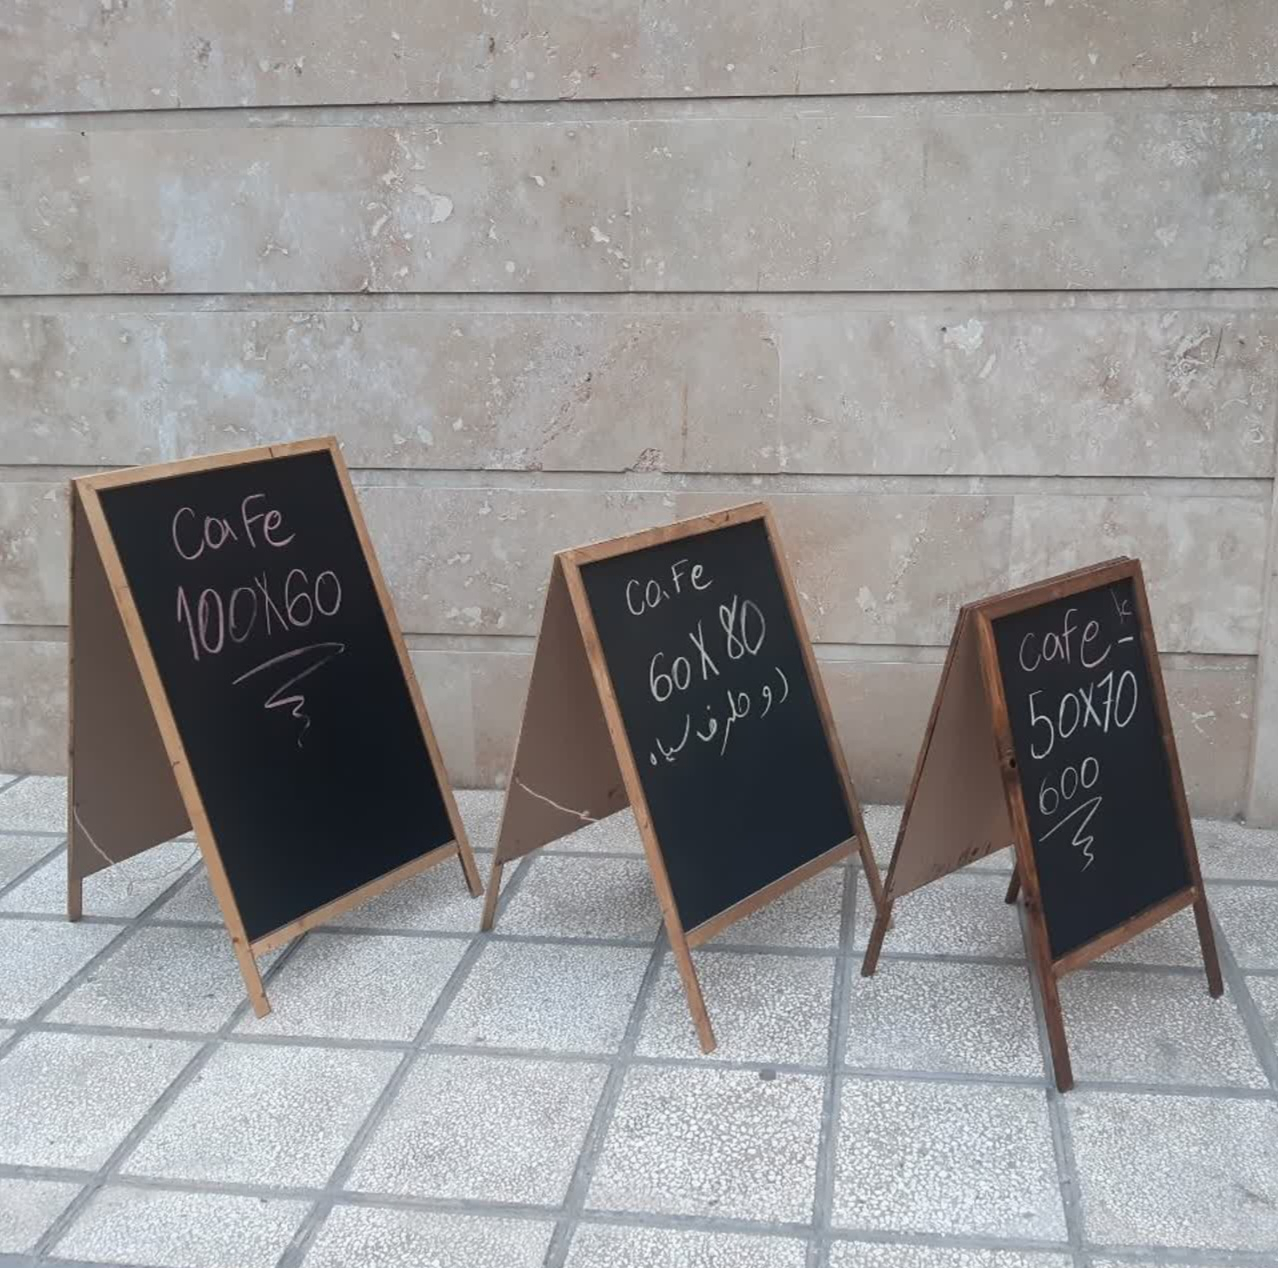 Cafe
100X60
cafe
60X80
دو طرف سیاه
cafe
50X70
600